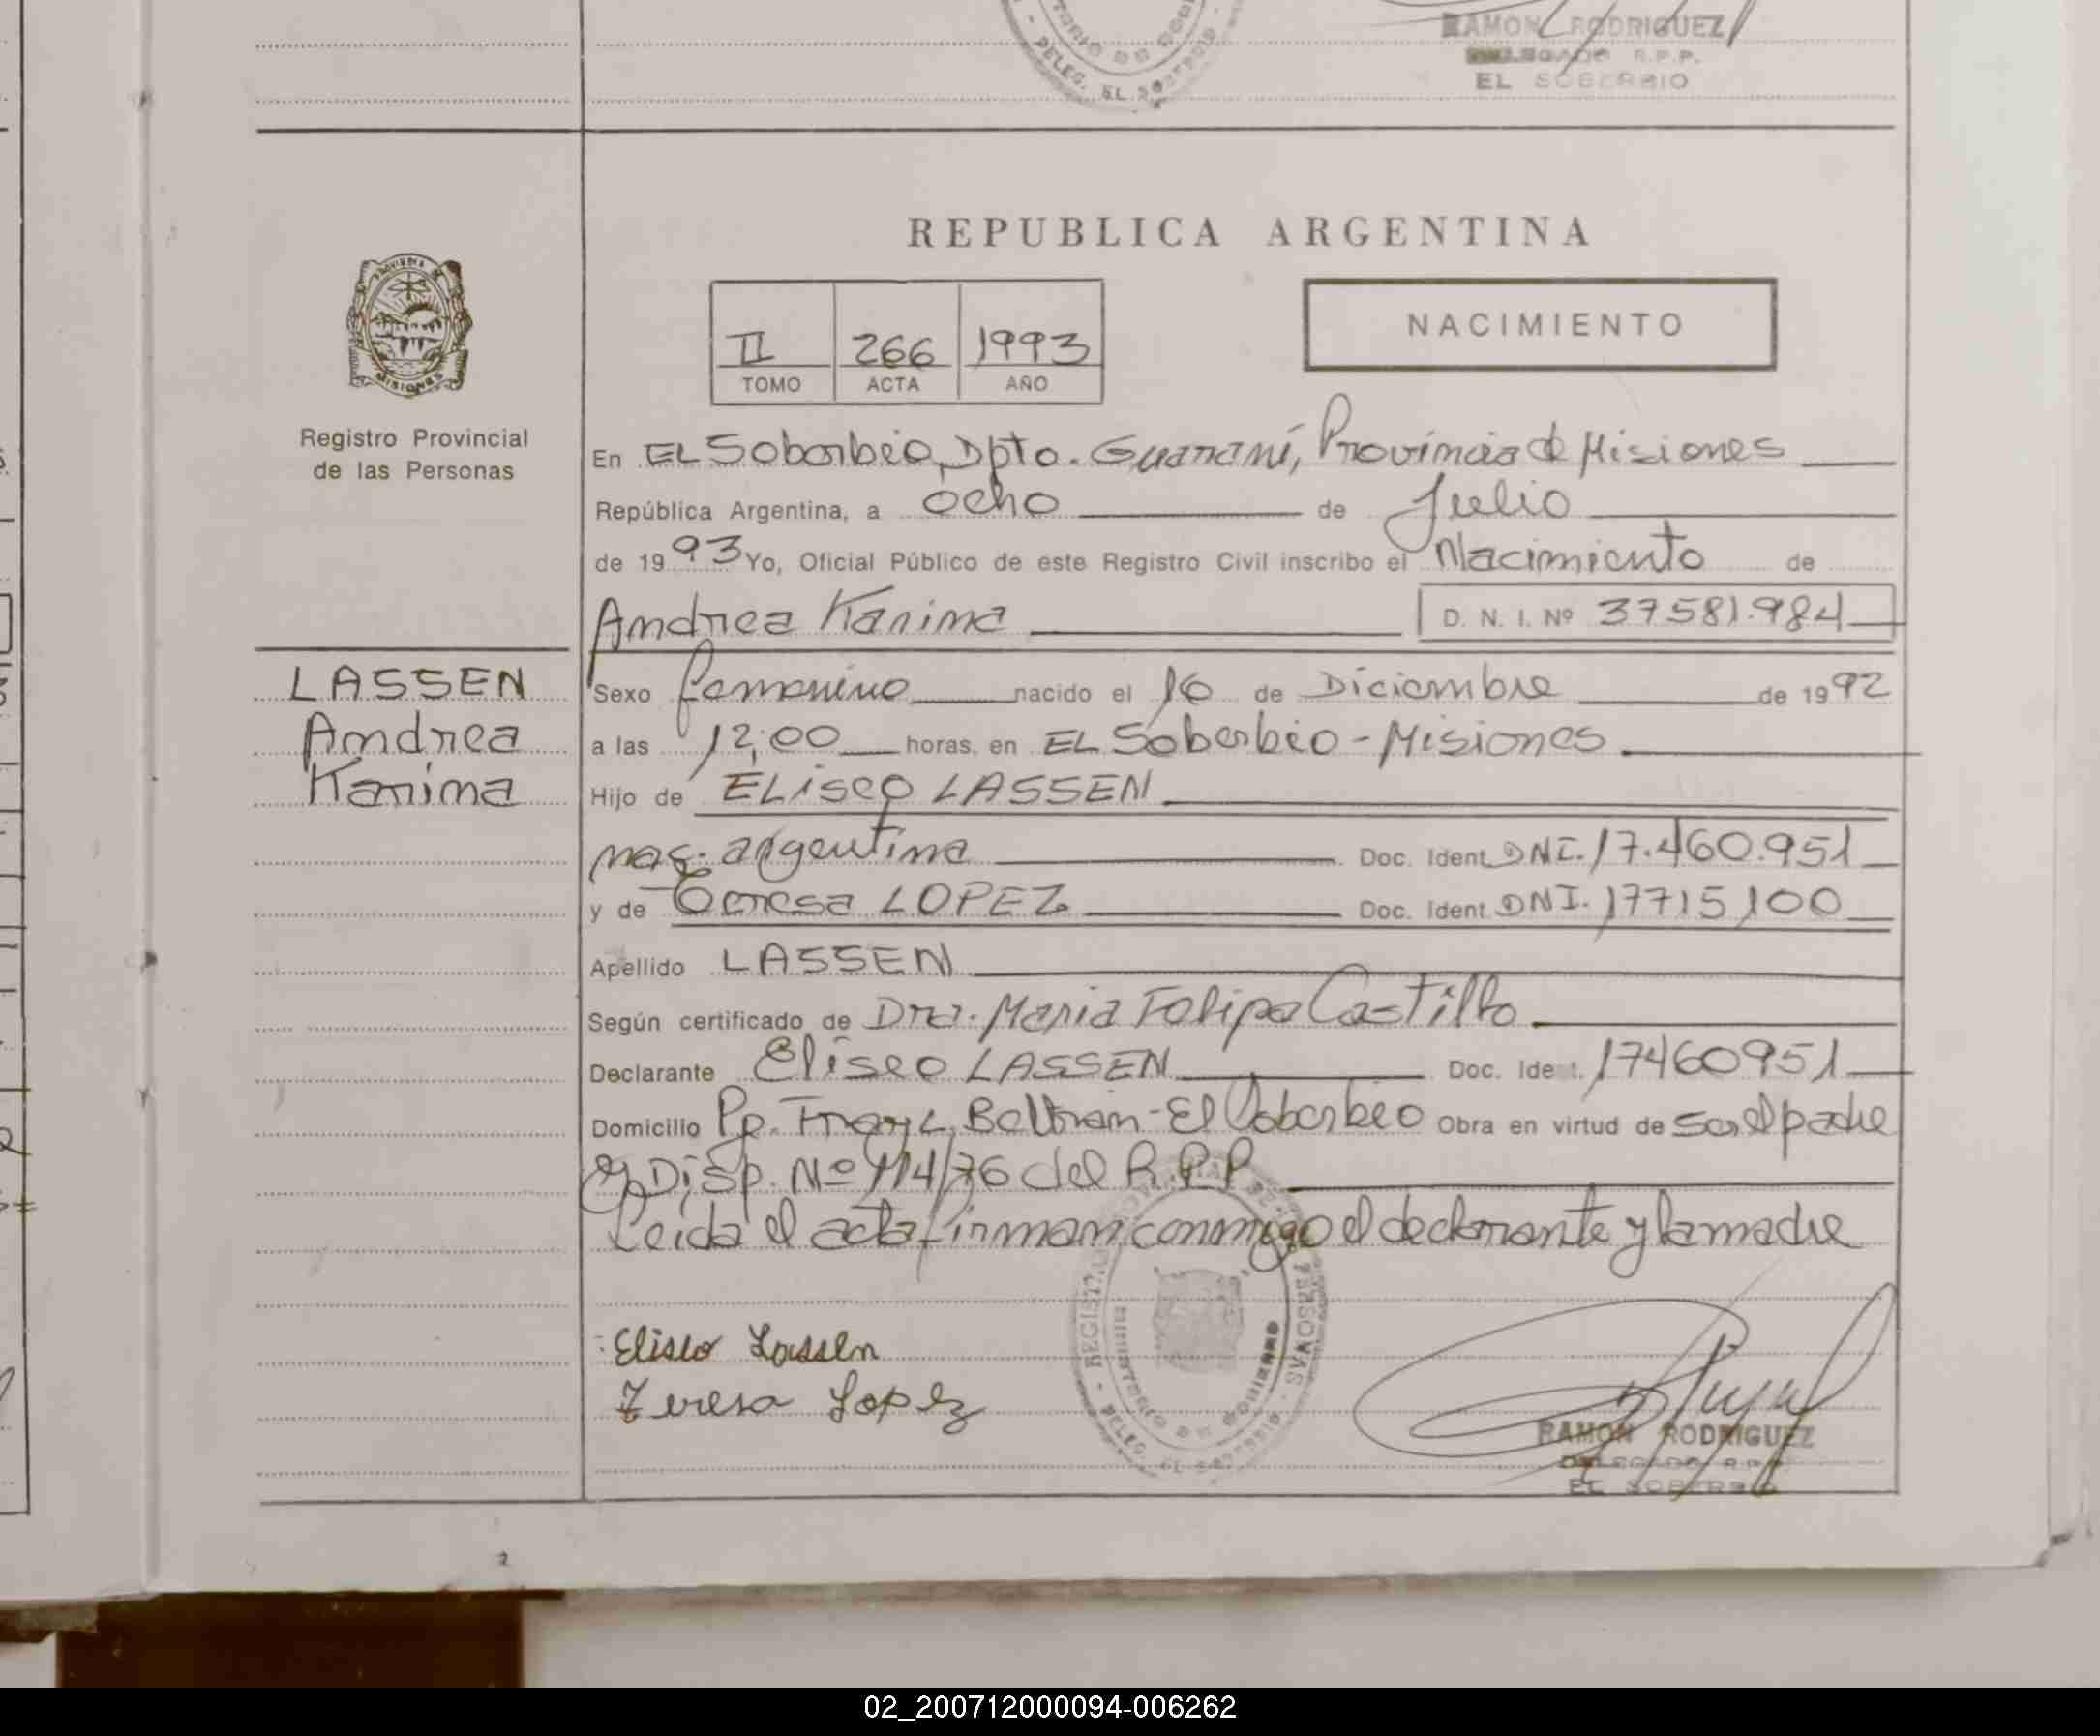 RAMON RODRIGUEZ
R.P.P.
EL SOBERBIO
DELEG. EL
REPUBLICA ARGENTINA
PROVINCIA DE MISIONES
II 266 1993
TOMO ACTA AÑO
NACIMIENTO
Registro Provincial
de las Personas
En EL Soberbio, Dpto. Guaraní, Provincia de Misiones
República Argentina, a ocho de Julio
de 1993 Yo, Oficial Público de este Registro Civil inscribo el Nacimiento de
Andrea Karina D. N. I. Nº 37581.984
LASSEN
Andrea
Karina
Sexo femenino nacido el 16 de Diciembre de 1992
a las 12,00 horas, en EL Soberbio - Misiones
Hijo de ELiseo LASSEN
nac. argentina Doc. Ident. DNI. 17.460.951
y de Teresa LOPEZ Doc. Ident. DNI. 17715100
Apellido LASSEN
Según certificado de Dra. Maria Felipa Castillo
Declarante Eliseo LASSEN Doc. Ident. 17460951
Domicilio Pje. Fray L. Beltran - El Soberbio Obra en virtud de ser el padre
Disp. Nº 114/76 del R.P.P.
Leida el acta firman conmigo el declarante y la madre
Eliseo Lassen
Teresa Lopez
REGISTRO PERSONAS
MINISTERIO DE GOBIERNO
DELEG. EL SOBERBIO
RAMON RODRIGUEZ
DELEGADO R.P.P.
EL SOBERBIO
02_200712000094-006262